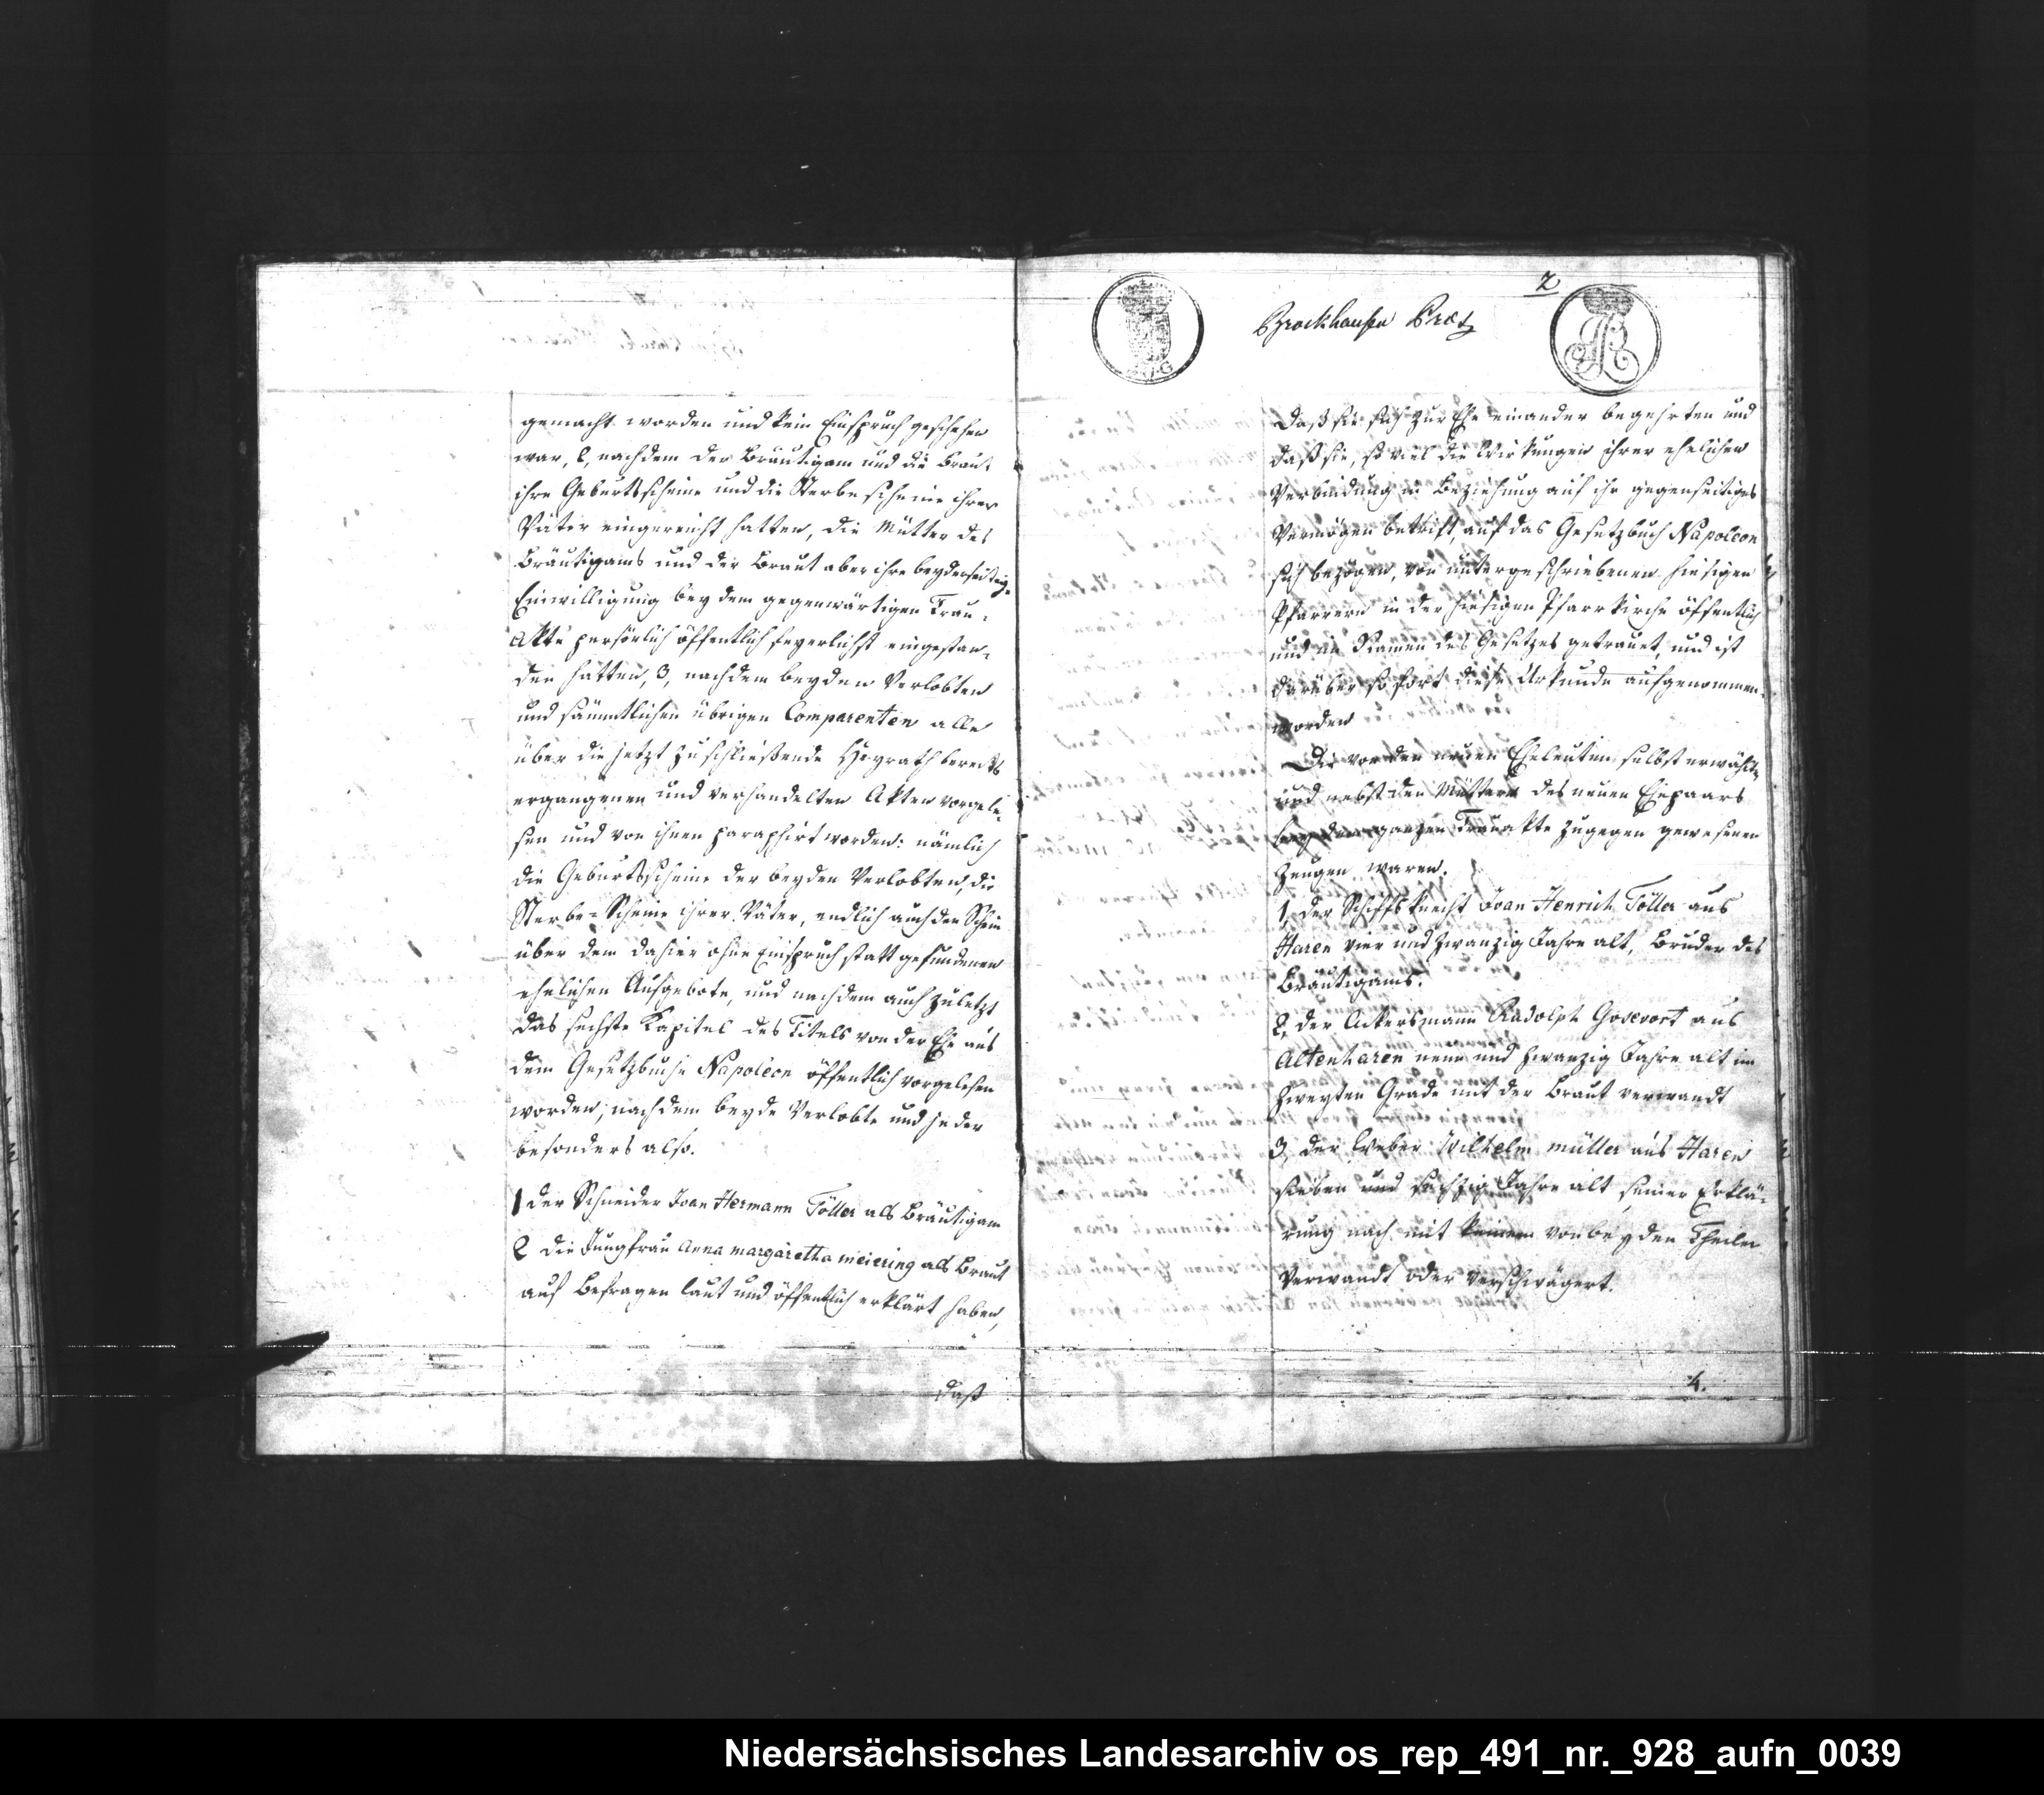 gemacht worden und kein Einspruch geschehen
war, 2, nachdem der Bräutigam und die Braut
ihre Geburtsscheine und die Sterbescheine ihrer
Väter eingereicht hatten, die Mütter des
Bräutigams und der Braut aber ihre beyderseitige
Einwilligung bey dem gegenwärtigen Trau-
Akte persönlich öffentlich feyerlichst eingestan-
den hatten, 3, nachdem beyden Verlobten
und sämmtlichen übrigen Comparenten alle
über die jetzt zu schließende Heyrath bereits
ergangenen und verhandelten Akten vorgele-
sen und von ihnen paraphirt worden: nämlich
die Geburtsscheine der beyden Verlobten, die
Sterbe-Scheine ihrer Väter, endlich auch den Schein
über dem dahier ohne Einspruch statt gefundenen
ehelichen Aufgebote, und nachdem auch zuletzt
das sechste Kapitel des Titels von der Ehe aus
dem Gesetzbuche Napoléon öffentlich vorgelesen
worden; nachdem beyde Verlobte und jeder
besonders also.
1 der Schneider Joan Hermann Töller als Bräutigam
2 die Jungfrau Anna margaretha meiering als Braut
auf Befragen laut und öffentlich erklärt haben,
daß
2
Brockhausen
daß sie sich zur Ehe einander begehrten und
daß sie, so viel die Wirkungen ihrer ehelichen
Verbindung in Beziehung auf ihr gegenseitiges
Vermögen betrift, auf das Gesetzbuch Napoléon
sich bezögen, von untergeschriebenen hiesigen
Pfarrern in der hiesigen Pfarrkirche öffentlich
und im Namen des Gesetzes getrauet, und ist
darüber sofort diese Urkunde aufgenommen
worden
Die von den neuen Eheleuten selbst erwählte
und nebst den Müttern des neuen Ehepaars
bey dem ganzen Trauakte zugegen gewesenen
Zeugen waren.
1, der Schiffsknecht Joan Henrich Töller aus
Haren vier und zwanzig Jahre alt, Bruder des
Bräutigams.
2, der Ackersmann Rudolph Gosevort aus
Altenharen neun und zwanzig Jahre alt im
zweyten Grade mit der Braut verwandt
3, der Weber Wilhelm müller aus Haren
sieben und sechzig Jahre alt, seiner Erklä-
rung nach mit keinem von beyden Theilen
verwandt oder verschwägert.
4.
Niedersächsisches Landesarchiv os_rep_491_nr._928_aufn_0039